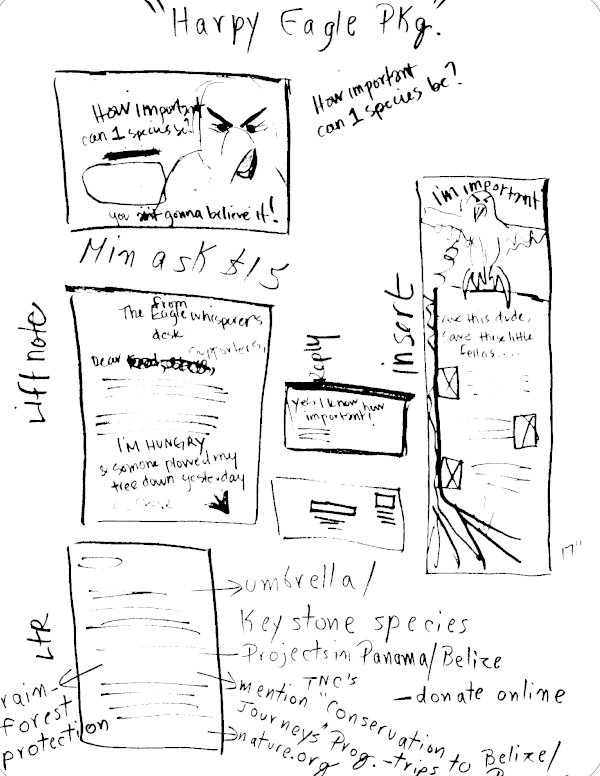 "Harpy Eagle PKg."
How important
can 1 species be?
you gonna believe it!
How important
can 1 species be?
Min ask $15
Lift note
From
The Eagle whisperers
desk
Dear supporters,
I'M HUNGRY
& somone plowed my
tree down yesterday
Reply
Yes I know how
important!
insert
I'm important
save this dude,
save these little
fellas....
17"
LtR
umbrella/
Keystone species
Projects in Panama/Belize
mention TNC's
"Conservation
Journeys" Prog. - trips to Belize/
- donate online
nature.org
rain-
forest
protection